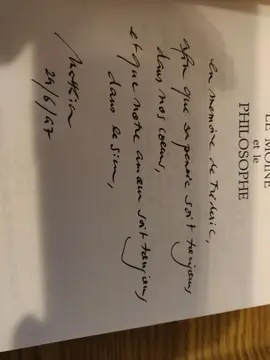 LE MOINE
et le
PHILOSOPHE
en mémoire de Frédéric,
afin que sa pensée soit toujours
dans nos cœurs,
et que notre amour soit toujours
dans le sien,
29/6/97